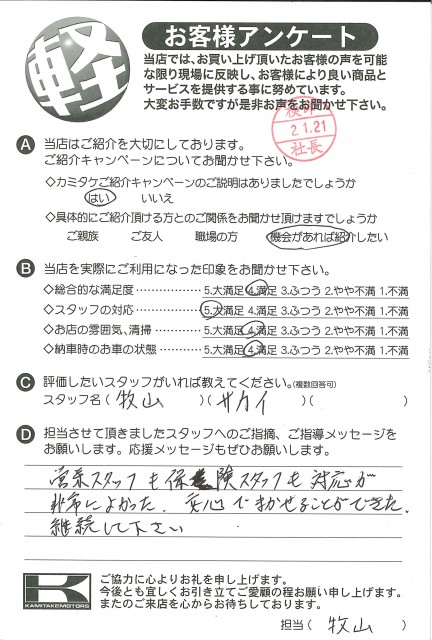 軽
お客様アンケート
当店では、お買い上げ頂いたお客様の声を可能
な限り現場に反映し、お客様により良い商品と
サービスを提供する事に努めています。
大変お手数ですが是非お声をお聞かせ下さい。
検印
2.1.21
社長
A 当店はご紹介を大切にしております。
ご紹介キャンペーンについてお聞かせ下さい。
◇カミタケご紹介キャンペーンのご説明はありましたでしょうか
はい いいえ
◇具体的にご紹介頂ける方とのご関係をお聞かせ頂けますでしょうか
ご親族 ご友人 職場の方 機会があれば紹介したい
B 当店を実際にご利用になった印象をお聞かせ下さい。
◇総合的な満足度 5.大満足 4.満足 3.ふつう 2.やや不満 1.不満
◇スタッフの対応 5.大満足 4.満足 3.ふつう 2.やや不満 1.不満
◇お店の雰囲気、清掃 5.大満足 4.満足 3.ふつう 2.やや不満 1.不満
◇納車時のお車の状態 5.大満足 4.満足 3.ふつう 2.やや不満 1.不満
C 評価したいスタッフがいれば教えてください。(複数回答可)
スタッフ名(牧山)(サカイ)( )
D 担当させて頂きましたスタッフへのご指摘、ご指導メッセージを
お願いします。応援メッセージもぜひお願いします。
営業スタッフも保険スタッフも対応が
非常によかった。安心でまかせることができた。
継続して下さい
K
KAMITAKEMOTORS
ご協力に心よりお礼を申し上げます。
今後とも宜しくお引き立てご愛顧の程お願い申し上げます。
またのご来店を心からお待ちしております。
担当(牧山)